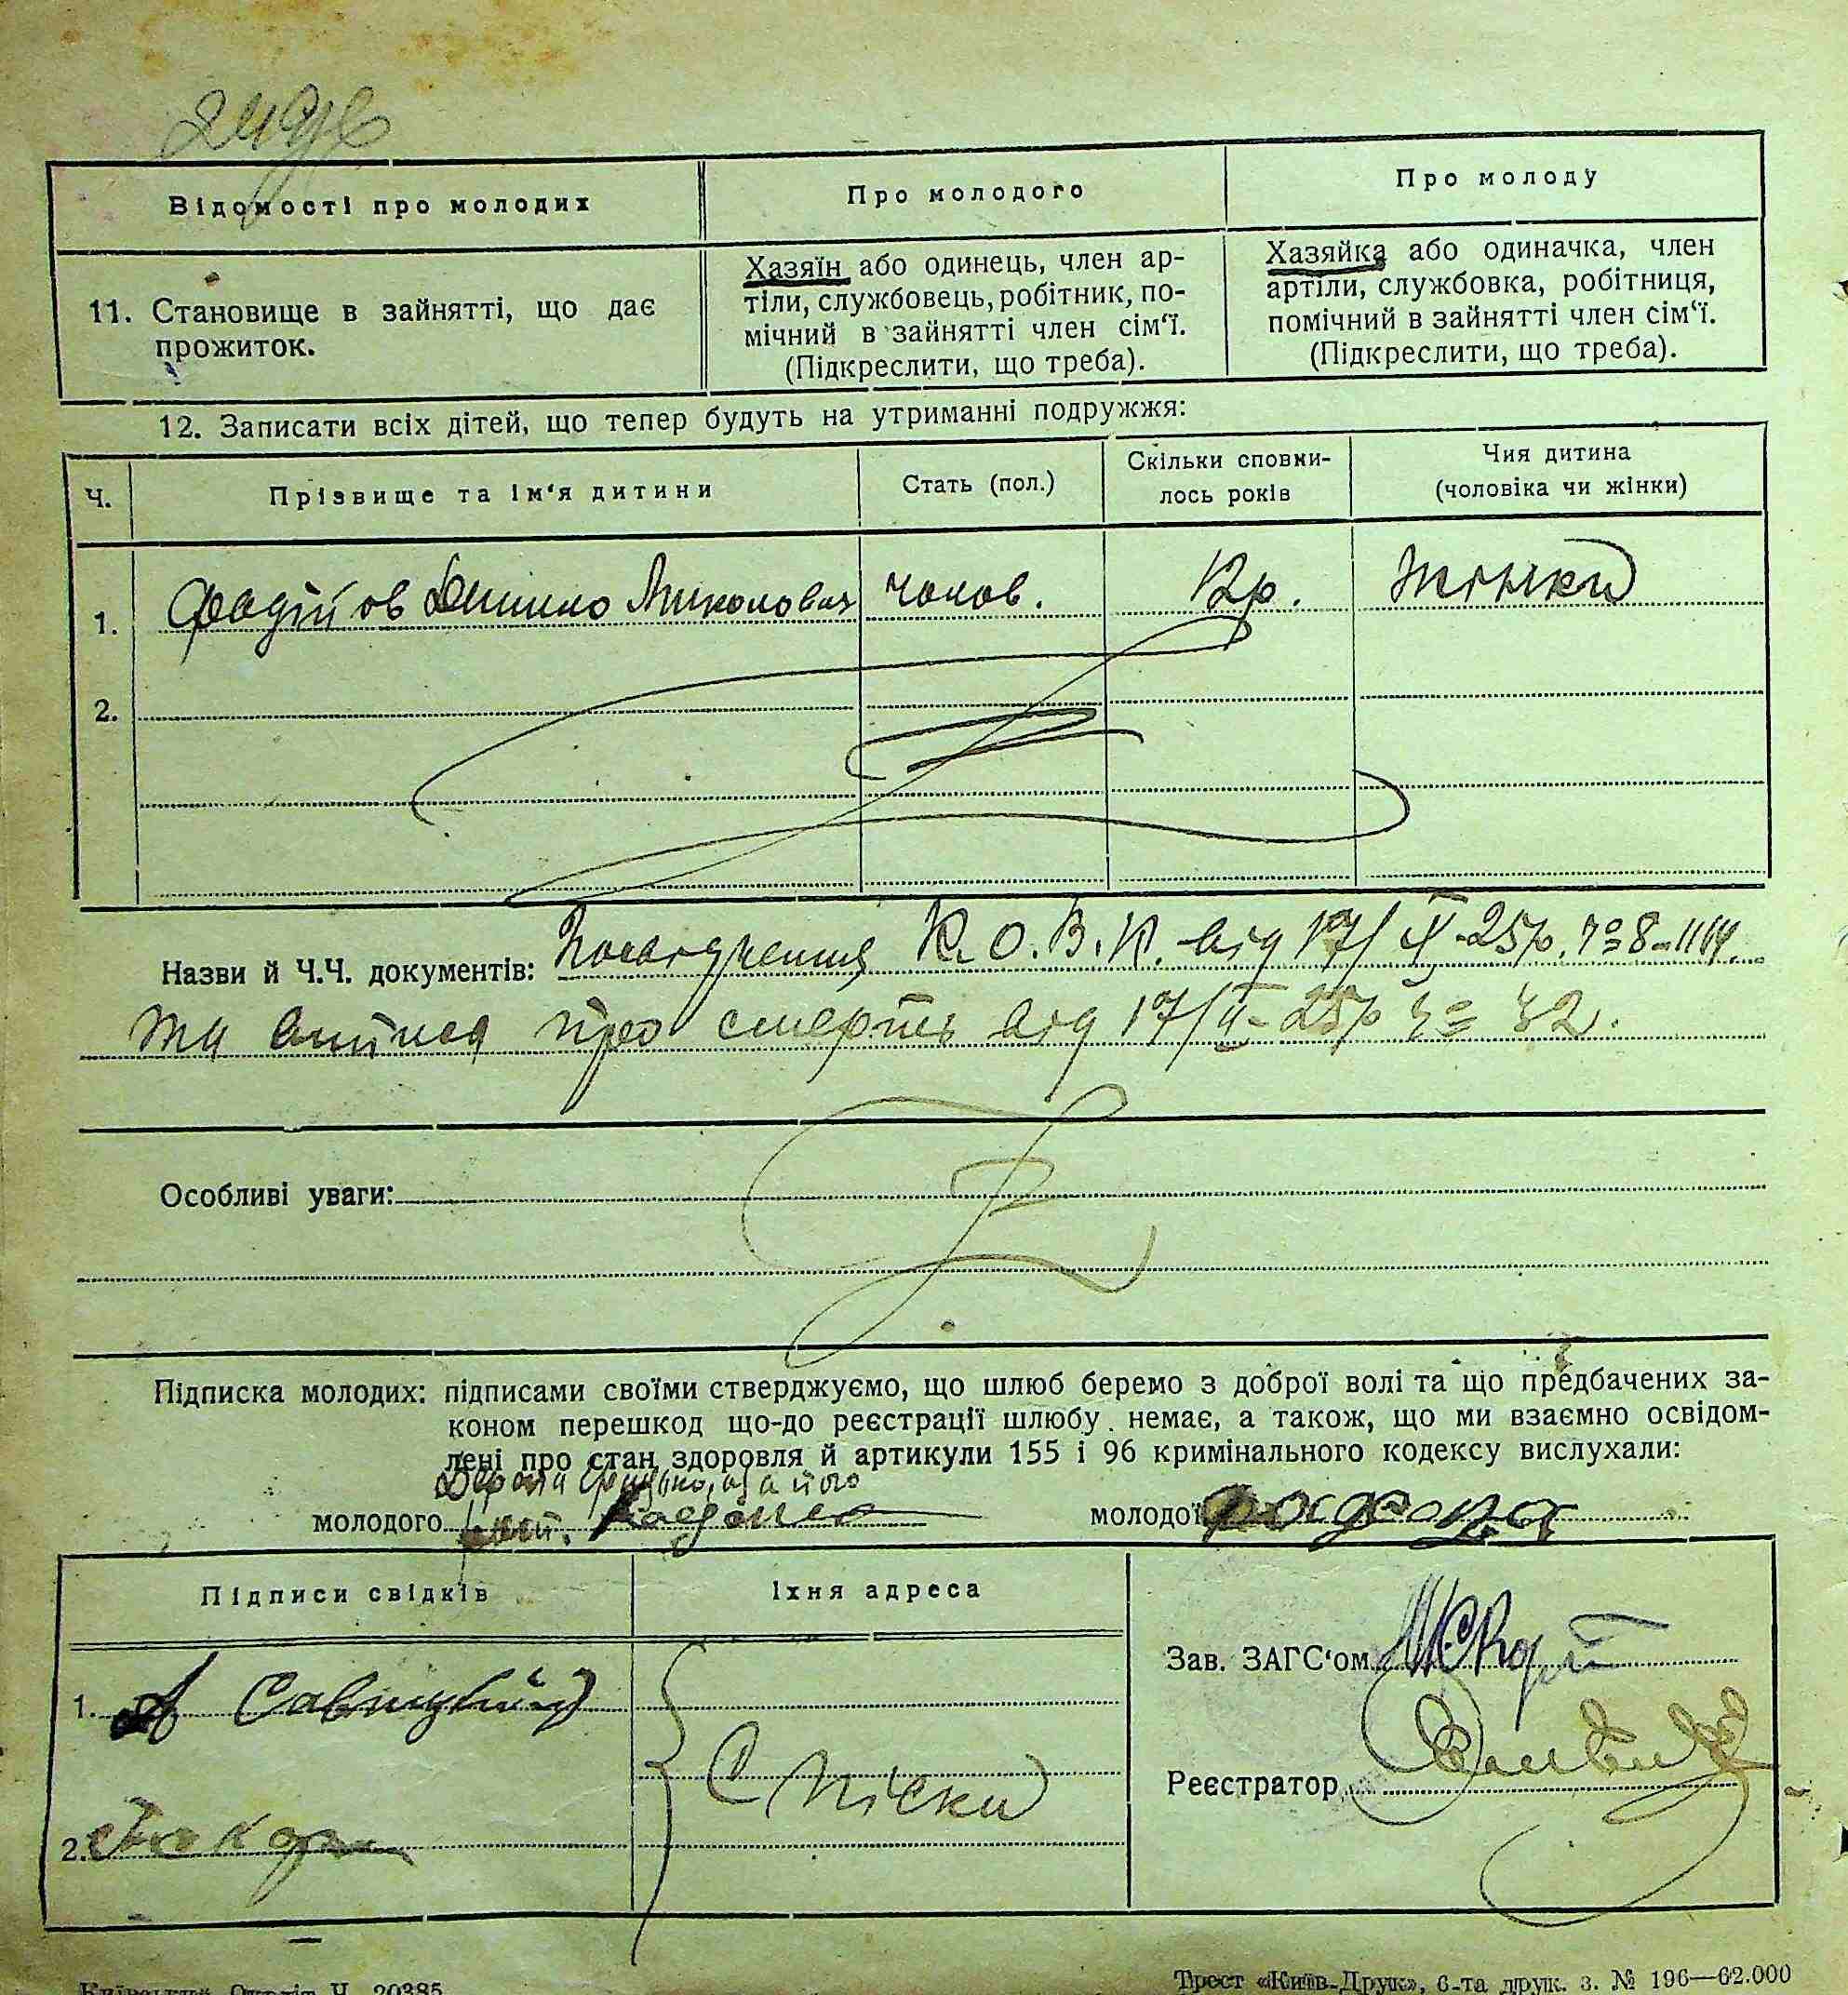 Відомості про молодих
Про молодого
Про молоду
11. Становище в зайнятті, що дає
прожиток.
Хазяїн або одинець, член ар-
тіли, службовець, робітник, по-
мічний в зайнятті член сім‘ї.
(Підкреслити, що треба).
Хазяйка або одиначка, член
артіли, службовка, робітниця,
помічний в зайнятті член сім‘ї.
(Підкреслити, що треба).
12. Записати всіх дітей, що тепер будуть на утриманні подружжя:
Ч.
Прізвище та ім‘я дитини
Стать (пол.)
Скільки сповни-
лось років
Чия дитина
(чоловіка чи жінки)
1.
Данило Миколович
чолов.
12р.
Жінки
2.
Назви й Ч.Ч. документів: Посвідчення К.О.В.К. від 17/ІІ-25р. Ч⁰ 8-1164.
та витяг про смерть від 17/ІІ-25р Ч⁰ 42.
Особливі уваги:
Підписка молодих: підписами своїми стверджуємо, що шлюб беремо з доброї волі та що предбачених за-
коном перешкод що-до реєстрації шлюбу немає, а також, що ми взаємно освідом-
лені про стан здоровля й артикули 155 і 96 кримінального кодексу вислухали:
молодого
молодої
Підписи свідків
Їхня адреса
1. А Савицький
С Піски
2.
Зав. ЗАГС‘ом
Реєстратор
Київський Окрліт Ч. 20385.
Трест «Київ-Друк», 6-та друк. з. № 196—62.000